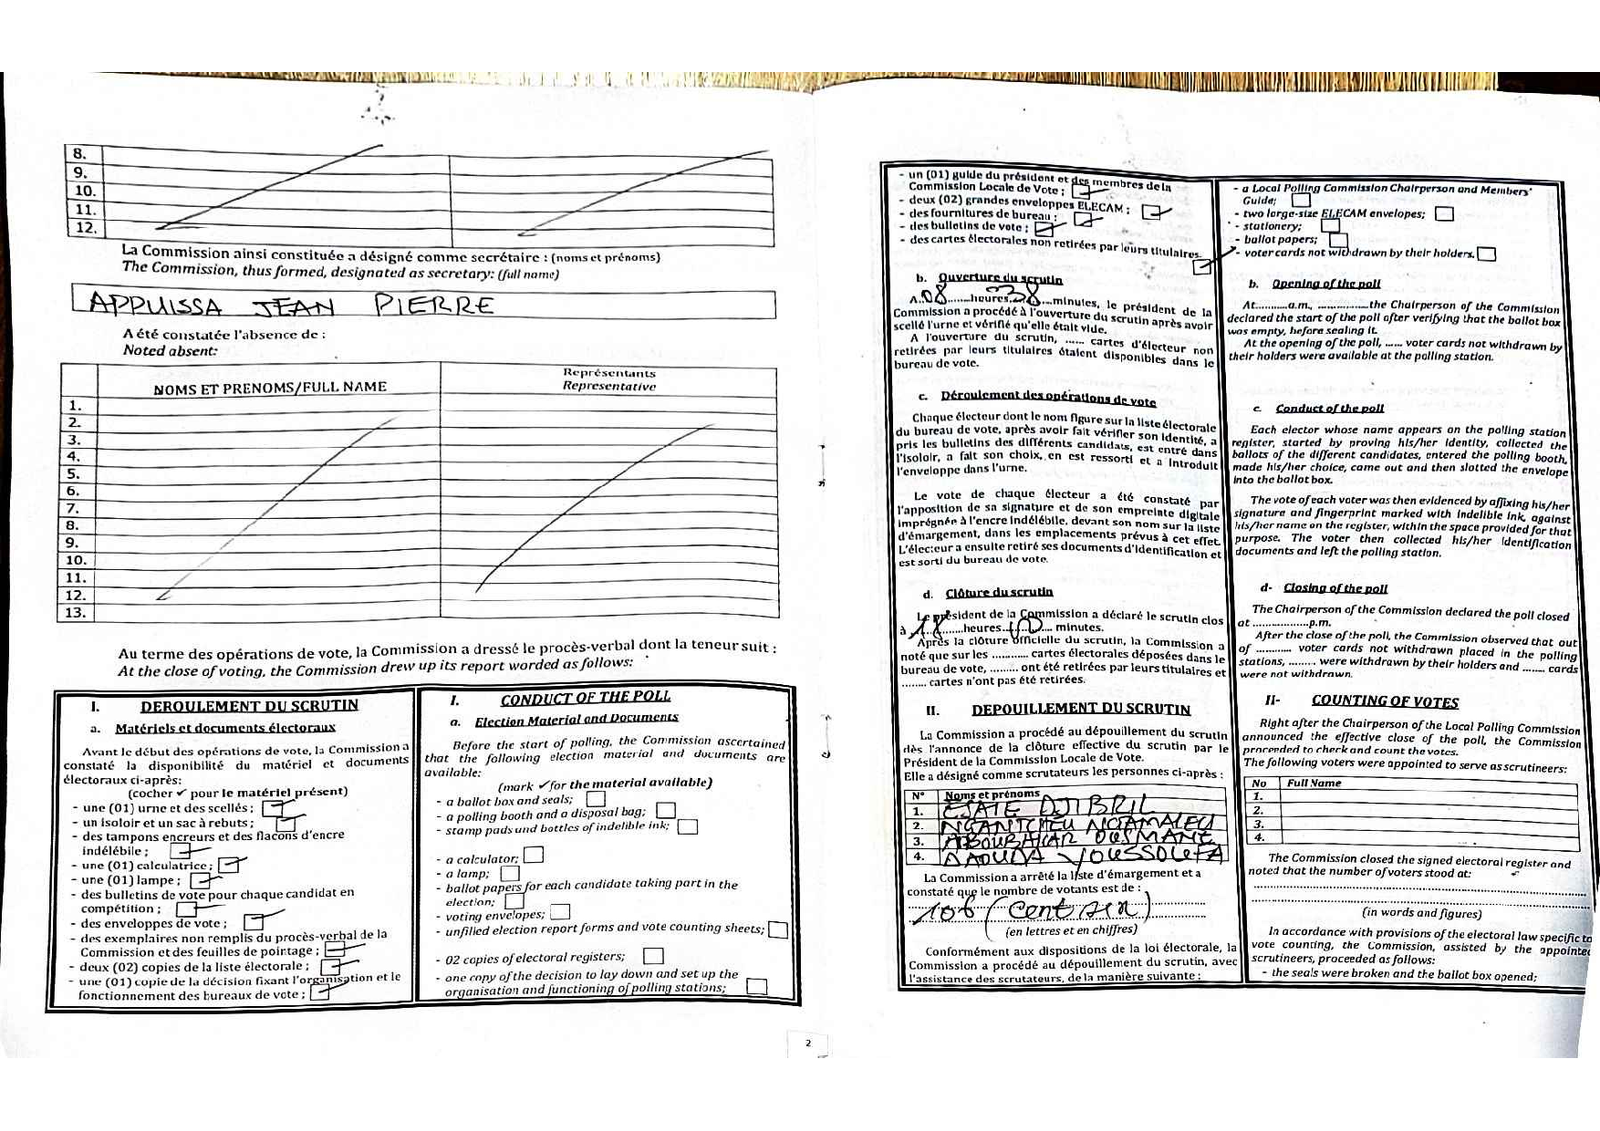 8.
9.
10.
11.
12.
La Commission ainsi constituée a désigné comme secrétaire : (noms et prénoms)
The Commission, thus formed, designated as secretary: (full name)
APPUISSA JEAN PIERRE
A été constatée l'absence de :
Noted absent:
NOMS ET PRENOMS/FULL NAME
Représentants
Representative
1.
2.
3.
4.
5.
6.
7.
8.
9.
10.
11.
12.
13.
Au terme des opérations de vote, la Commission a dressé le procès-verbal dont la teneur suit :
At the close of voting, the Commission drew up its report worded as follows:
I. DEROULEMENT DU SCRUTIN
a. Matériels et documents électoraux
Avant le début des opérations de vote, la Commission a
constaté la disponibilité du matériel et documents
électoraux ci-après:
(cocher ✓ pour le matériel présent)
- une (01) urne et des scellés ;
- un isoloir et un sac à rebuts ;
- des tampons encreurs et des flacons d'encre
indélébile ;
- une (01) calculatrice ;
- une (01) lampe ;
- des bulletins de vote pour chaque candidat en
compétition ;
- des enveloppes de vote ;
- des exemplaires non remplis du procès-verbal de la
Commission et des feuilles de pointage ;
- deux (02) copies de la liste électorale ;
- une (01) copie de la décision fixant l'organisation et le
fonctionnement des bureaux de vote ;
I. CONDUCT OF THE POLL
a. Election Material and Documents
Before the start of polling, the Commission ascertained
that the following election material and documents are
available:
(mark ✓ for the material available)
- a ballot box and seals;
- a polling booth and a disposal bag;
- stamp pads and bottles of indelible ink;
- a calculator;
- a lamp;
- ballot papers for each candidate taking part in the
election;
- voting envelopes;
- unfilled election report forms and vote counting sheets;
- 02 copies of electoral registers;
- one copy of the decision to lay down and set up the
organisation and functioning of polling stations;
2
- un (01) guide du président et des membres de la
Commission Locale de Vote ;
- deux (02) grandes enveloppes ELECAM ;
- des fournitures de bureau ;
- des bulletins de vote ;
- des cartes électorales non retirées par leurs titulaires.
b. Ouverture du scrutin
A 08 heures 38 minutes, le président de la
Commission a procédé à l'ouverture du scrutin après avoir
scellé l'urne et vérifié qu'elle était vide.
A l'ouverture du scrutin, ...... cartes d'électeur non
retirées par leurs titulaires étaient disponibles dans le
bureau de vote.
c. Déroulement des opérations de vote
Chaque électeur dont le nom figure sur la liste électorale
du bureau de vote, après avoir fait vérifier son identité, a
pris les bulletins des différents candidats, est entré dans
l'isoloir, a fait son choix, en est ressorti et a introduit
l'enveloppe dans l'urne.
Le vote de chaque électeur a été constaté par
l'apposition de sa signature et de son empreinte digitale
imprégnée à l'encre indélébile, devant son nom sur la liste
d'émargement, dans les emplacements prévus à cet effet.
L'électeur a ensuite retiré ses documents d'identification et
est sorti du bureau de vote.
d. Clôture du scrutin
Le président de la Commission a déclaré le scrutin clos
à 18 heures 10 minutes.
Après la clôture officielle du scrutin, la Commission a
noté que sur les ........... cartes électorales déposées dans le
bureau de vote, ......... ont été retirées par leurs titulaires et
........ cartes n'ont pas été retirées.
II. DEPOUILLEMENT DU SCRUTIN
La Commission a procédé au dépouillement du scrutin
dès l'annonce de la clôture effective du scrutin par le
Président de la Commission Locale de Vote.
Elle a désigné comme scrutateurs les personnes ci-après :
N° Noms et prénoms
1. ESAIE DJIBRIL
2. NGANTCHEU NGAMALEU
3. ABOUBAKAR OUSMANE
4. DAOUDA YOUSSOUFA
La Commission a arrêté la liste d'émargement et a
constaté que le nombre de votants est de :
106 (cent six)
(en lettres et en chiffres)
Conformément aux dispositions de la loi électorale, la
Commission a procédé au dépouillement du scrutin, avec
l'assistance des scrutateurs, de la manière suivante :
- a Local Polling Commission Chairperson and Members'
Guide;
- two large-size ELECAM envelopes;
- stationery;
- ballot papers;
- voter cards not withdrawn by their holders.
b. Opening of the poll
At..........a.m., ...............the Chairperson of the Commission
declared the start of the poll after verifying that the ballot box
was empty, before sealing it.
At the opening of the poll, ...... voter cards not withdrawn by
their holders were available at the polling station.
c. Conduct of the poll
Each elector whose name appears on the polling station
register, started by proving his/her identity, collected the
ballots of the different candidates, entered the polling booth,
made his/her choice, came out and then slotted the envelope
into the ballot box.
The vote of each voter was then evidenced by affixing his/her
signature and fingerprint marked with indelible ink, against
his/her name on the register, within the space provided for that
purpose. The voter then collected his/her identification
documents and left the polling station.
d- Closing of the poll
The Chairperson of the Commission declared the poll closed
at ...............p.m.
After the close of the poll, the Commission observed that out
of ........... voter cards not withdrawn placed in the polling
stations, ........ were withdrawn by their holders and ....... cards
were not withdrawn.
II- COUNTING OF VOTES
Right after the Chairperson of the Local Polling Commission
announced the effective close of the poll, the Commission
proceeded to check and count the votes.
The following voters were appointed to serve as scrutineers:
No Full Name
1.
2.
3.
4.
The Commission closed the signed electoral register and
noted that the number of voters stood at:
(in words and figures)
In accordance with provisions of the electoral law specific to
vote counting, the Commission, assisted by the appointed
scrutineers, proceeded as follows:
- the seals were broken and the ballot box opened;